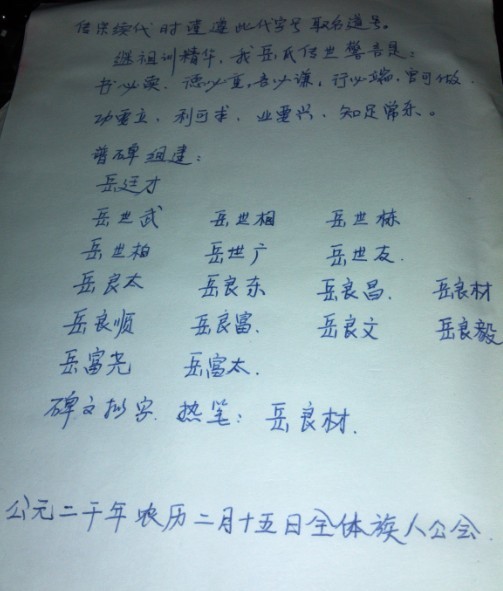 传宗接代时谨遵此代字号取名道号。
继祖训精华,我岳氏传世警言是:
书必读、德必重,言必谦,行必端,官可做
功要立,利可求,业要兴,知足常乐。
普碑组建:
岳廷才
岳世武 岳世相 岳世栋
岳世柏 岳世广 岳世友.
岳良太 岳良东 岳良昌. 岳良材
岳良顺 岳良富. 岳良文 岳良毅
岳富尧 岳富太.
碑文拟字. 热笔: 岳良材.
公元二千年农历二月十五日全体族人公会.